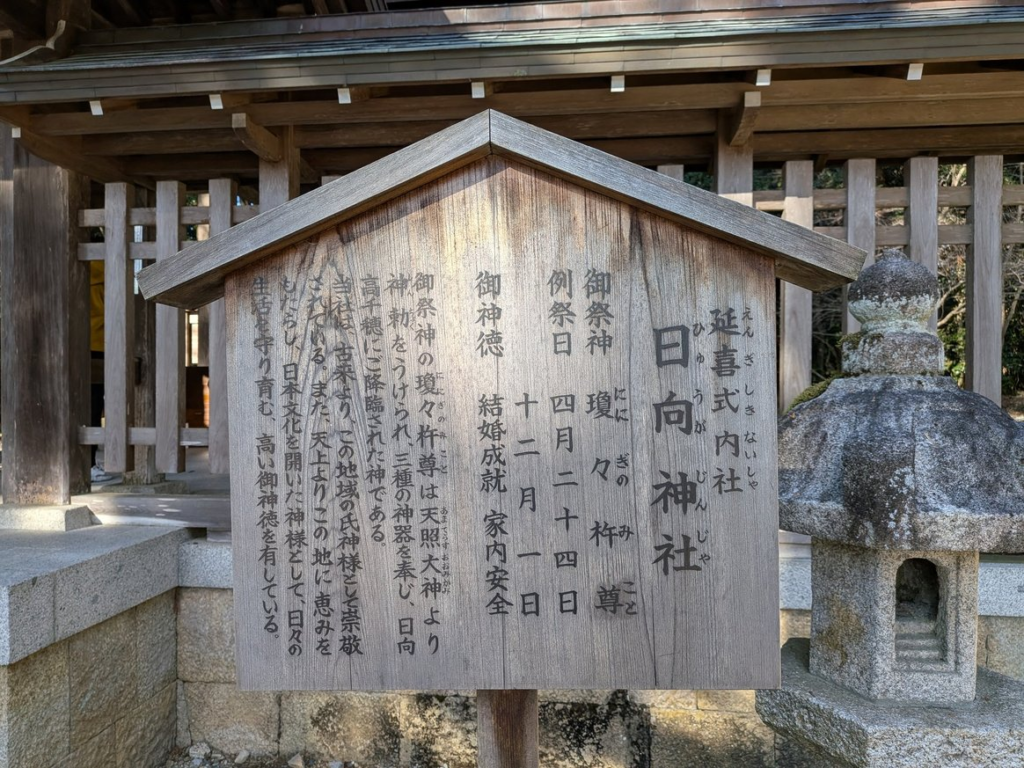 延喜式内社
えんぎしきないしゃ
日向神社
ひゅうがじんじゃ
御祭神　瓊々杵尊
ににぎのみこと
例祭日　四月二十四日
十二月一日
御神徳　結婚成就　家内安全
御祭神の瓊々杵尊は天照大神より
神勅をうけられ、三種の神器を奉じ、日向
高千穂にご降臨された神である。
当社は、古来より、この地域の氏神様として崇敬
されている。また、天上よりこの地に恵みを
もたらし、日本文化を開いた神様として、日々の
生活を守り育む、高い御神徳を有している。